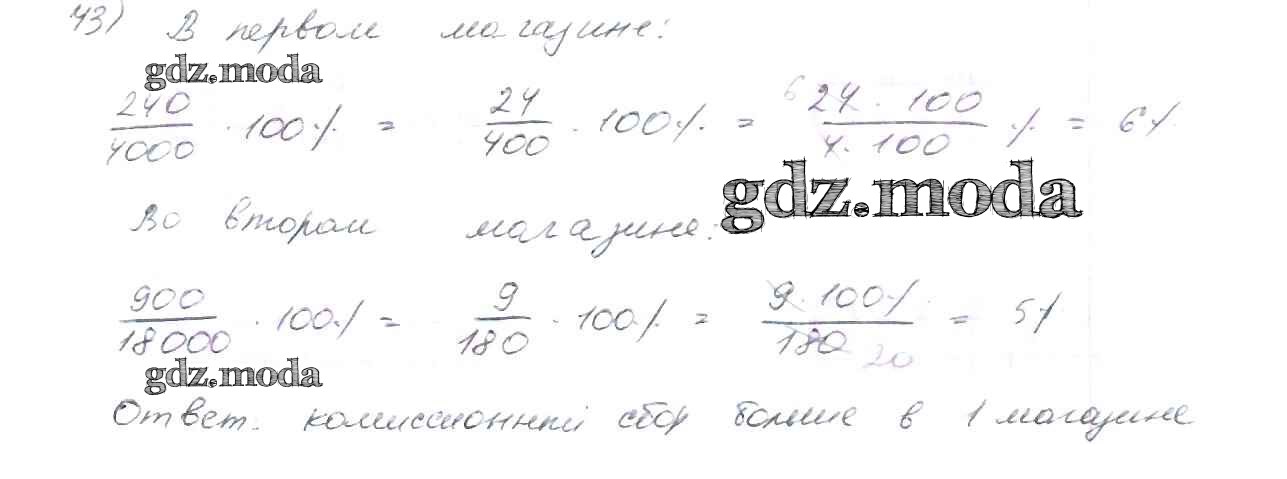 43) В первом магазине:
gdz.moda
240/4000 · 100% = 24/400 · 100% = 6 24 · 100/4 · 100 % = 6%
gdz.moda
Во втором магазине:
900/18000 · 100% = 9/180 · 100% = 9 · 100%/180 20 = 5%
gdz.moda
Ответ. комиссионный сбор больше в 1 магазине